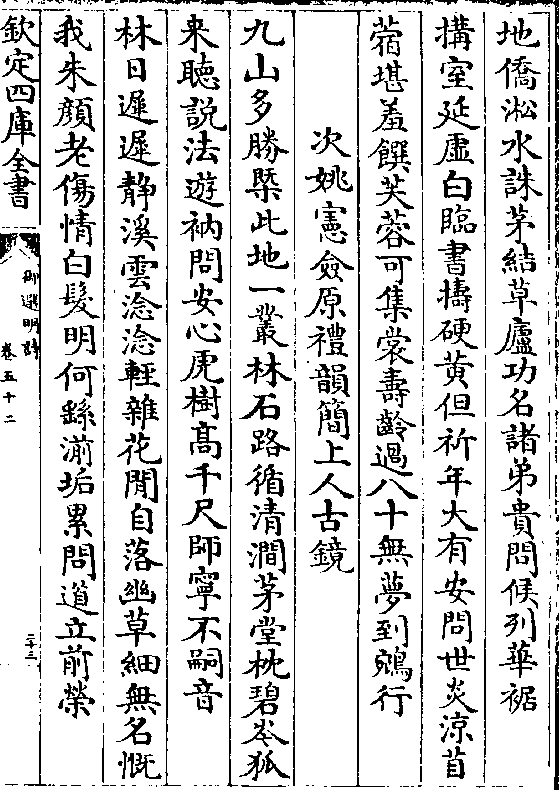 地僑淞水誅茅結草廬功名諸弟貴問候列華裾
搆室延虛白臨書擣硬黃但祈年大有安問世炎涼苜
蓿堪羞饌芙蓉可集裳壽齡過八十無夢到鵷行
次姚憲僉原禮韻簡上人古鏡
九山多勝槩此地一叢林石路循清澗茅堂枕碧岑狐
来聽説法遊衲問安心虎樹髙千尺師寧不嗣音
林日遲遲静溪雲淰淰輕雜花閒自落幽草細無名慨
我朱顔老傷情白髮明何繇湔垢累問道立前榮
欽定四庫全書
御選明詩
卷五十二
二十三